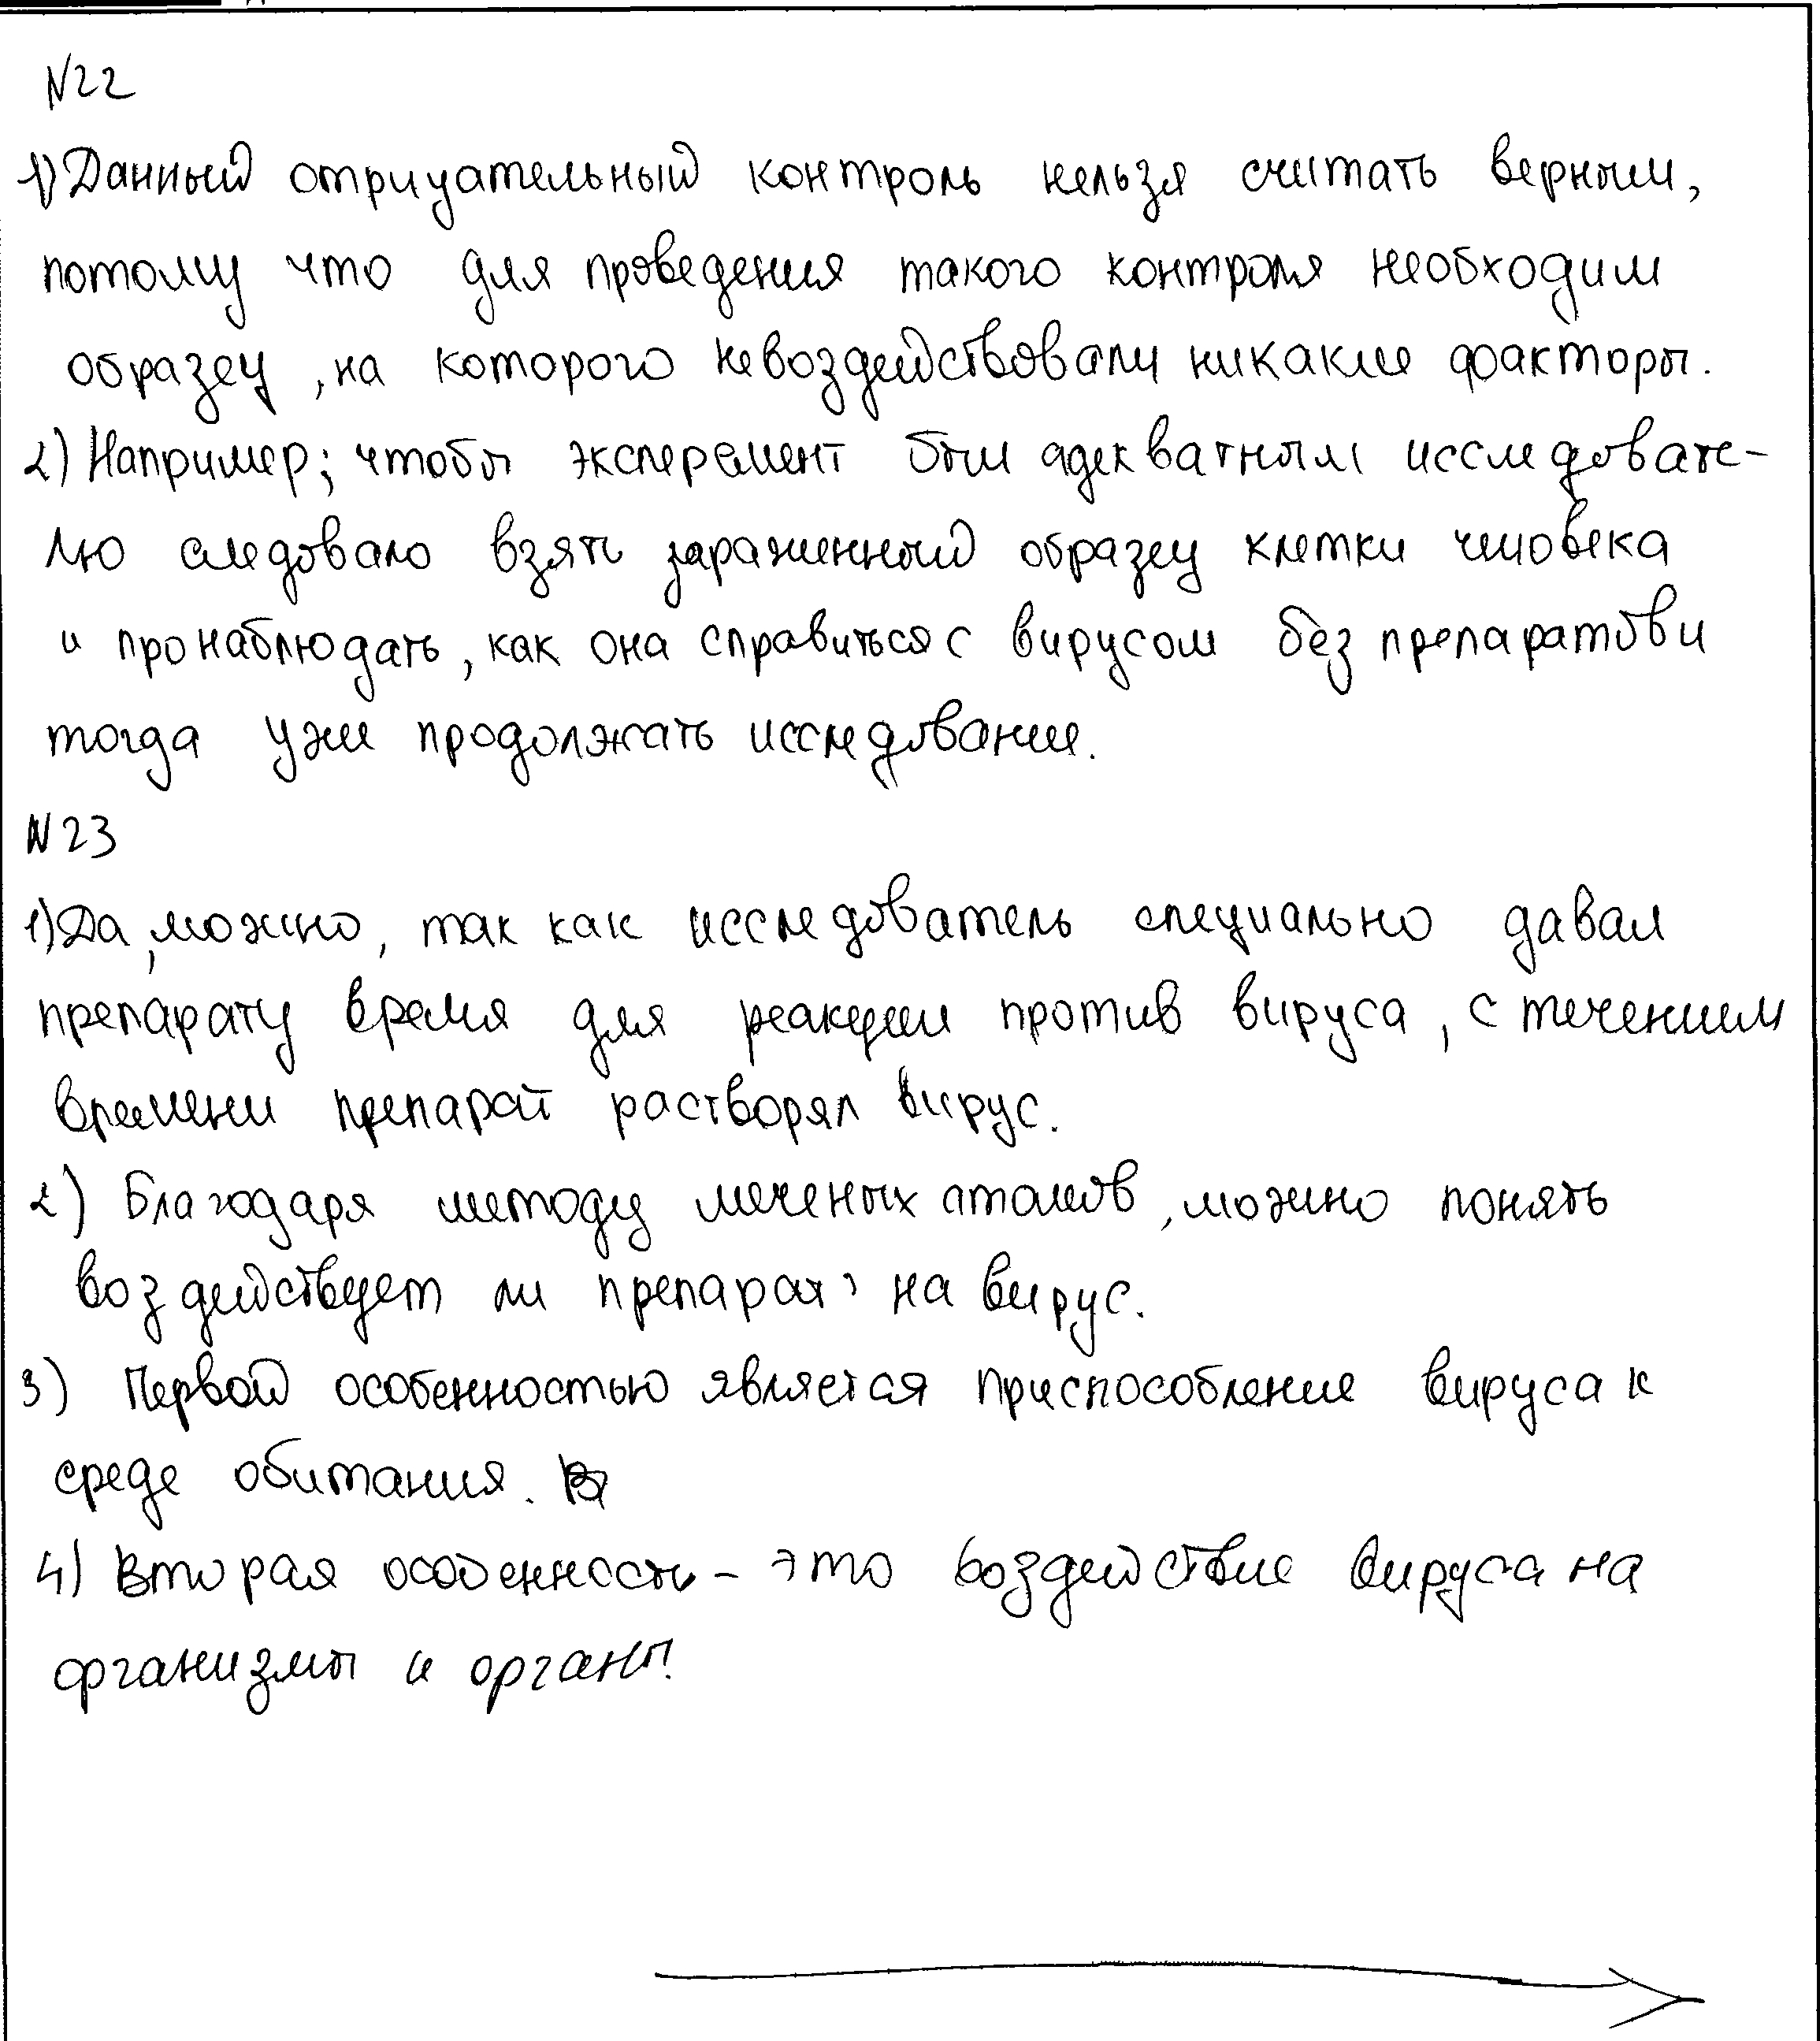 N22
1) Данный отрицательный контроль нельзя считать верным,
потому что для проведения такого контроля необходим
образец, на которого невоздействовали никакие факторы.
2) Например; чтобы эксперемент был адекватным исследовате-
лю следовало взять зараженный образец клетки человека
и пронаблюдать, как она справиться с вирусом без препаратов и
тогда уже продолжать исследование.
N23
1) Да, можно, так как исследователь специально давал
препарату время для реакции против вируса, с течением
времени препарат растворял вирус.
2) Благодаря методу меченых атомов, можно понять
воздействует ли препарат на вирус.
3) Первой особенностью является приспособление вируса к
среде обитания.
4) Вторая особенность - это воздействие вируса на
организмы и органы.